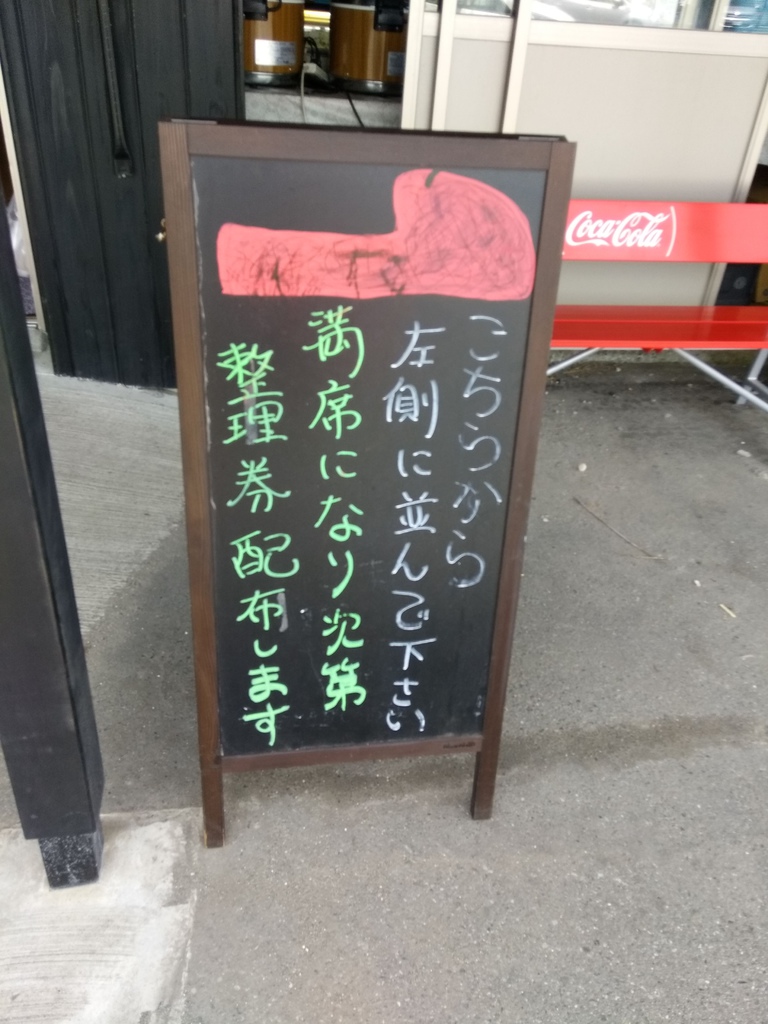 こちらから
左側に並んで下さい
満席になり次第
整理券配布します
Coca-Cola